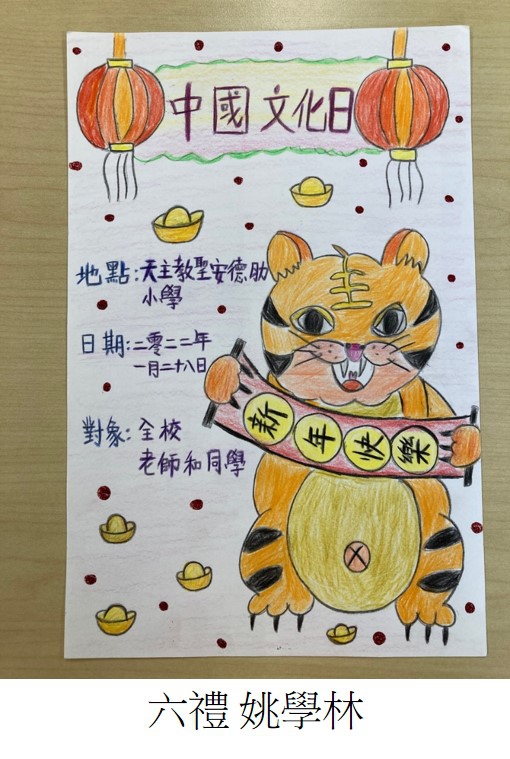 中國文化日
地點:天主教聖安德肋
小學
日期:二零二二年
一月二十八日
對象:全校
老師和同學
王
新年快樂
六禮 姚學林